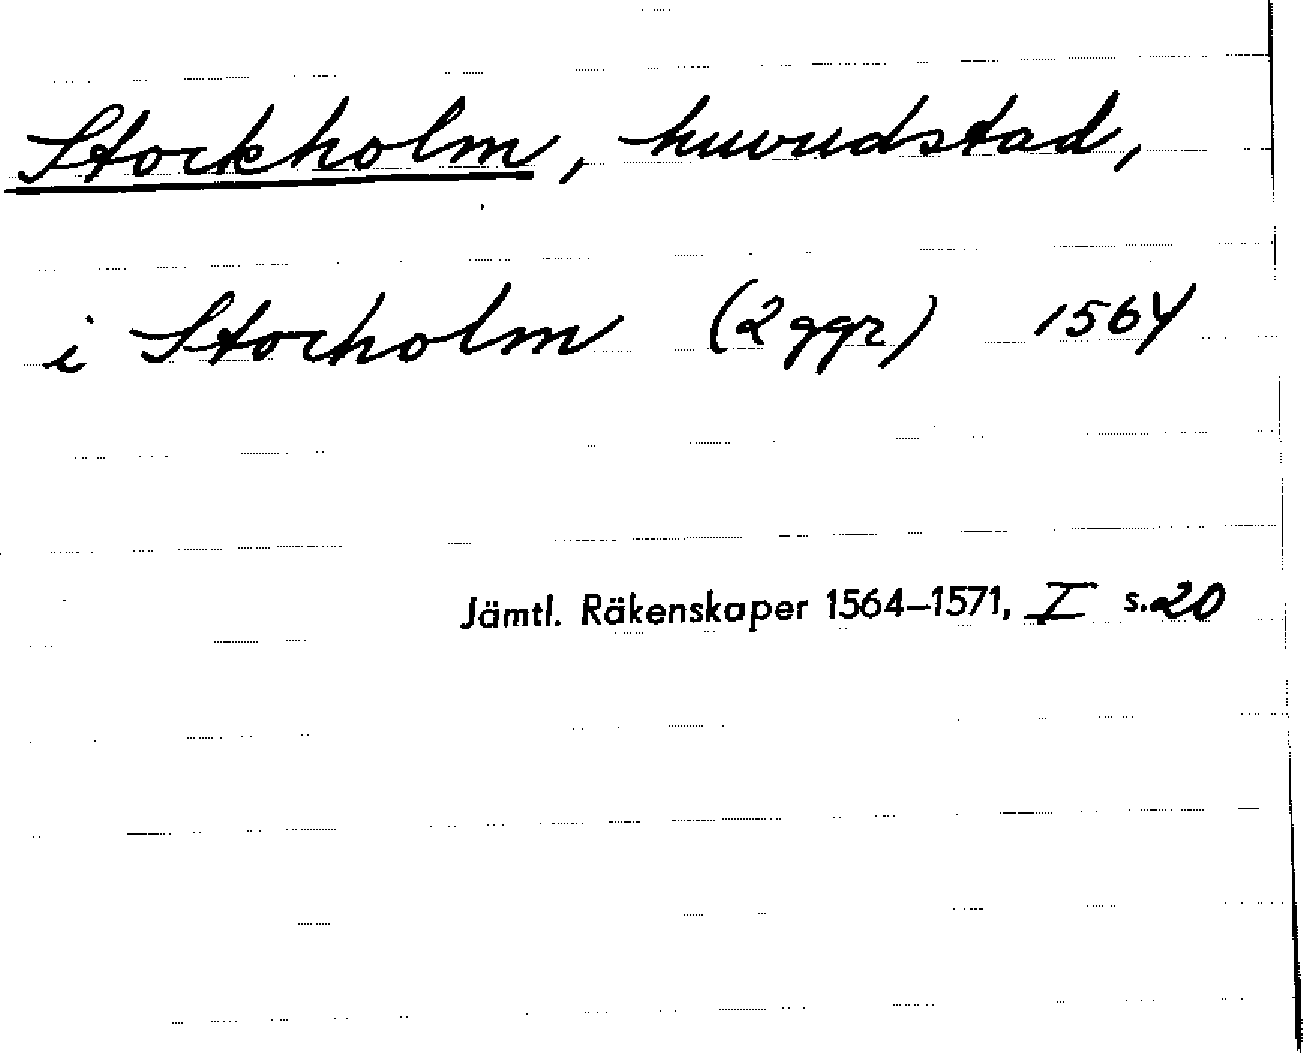 Stockholm, huvudstad,
i Stocholm (2 ggr) 1564
Jämtl. Räkenskaper 1564–1571, I s. 20